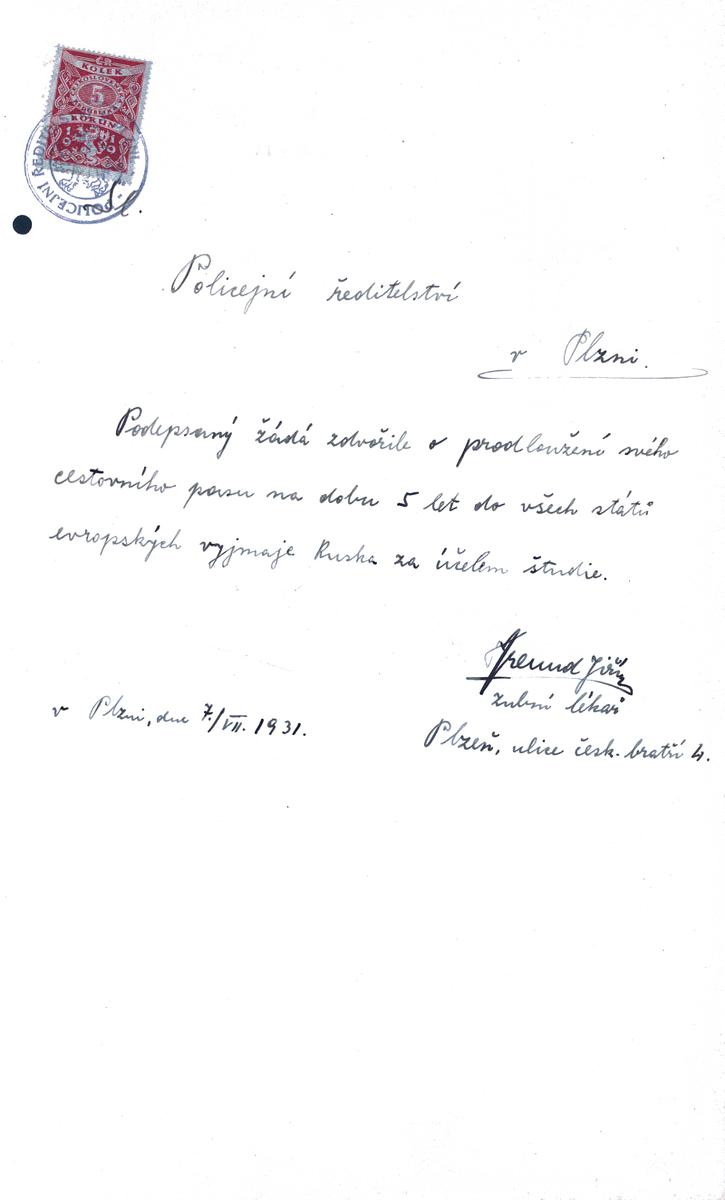 ČR
KOLEK
5
KORUN
POLICEJNÍ ŘEDITEL
Policejní ředitelství
v Plzni.
Podepsaný žádá zdvořile o prodloužení svého
cestovního pasu na dobu 5 let do všech států
evropských vyjmaje Ruska za účelem studie.
Freund Jiří
zubní lékař
v Plzni, dne 7./VII. 1931.
Plzeň, ulice česk. bratří 4.